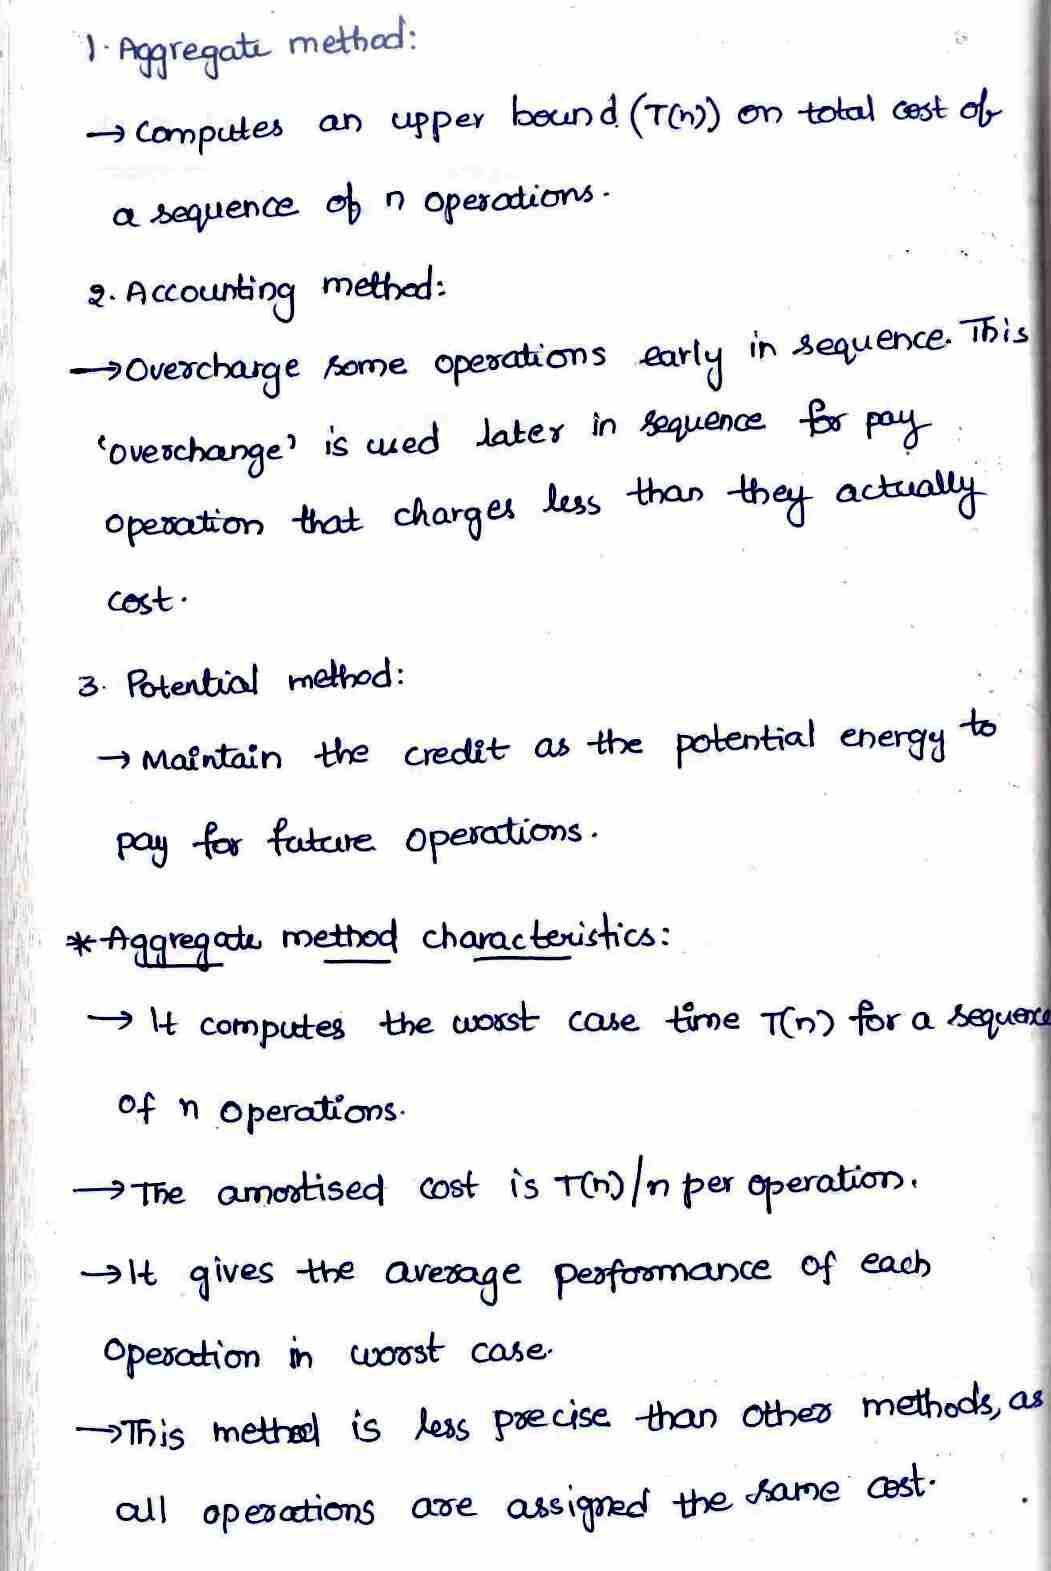 1. Aggregate method:
→ Computes an upper bound (T(n)) on total cost of
a sequence of n operations.
2. Accounting method:
→ Overcharge some operations early in sequence. This
'overchange' is used later in sequence for pay
operation that charges less than they actually
cost.
3. Potential method:
→ Maintain the credit as the potential energy to
pay for future operations.
* Aggregate method characteristics:
→ It computes the worst case time T(n) for a sequence
of n operations.
→ The amortised cost is T(n)/n per operation.
→ It gives the average performance of each
operation in worst case.
→ This method is less precise than other methods, as
all operations are assigned the same cost.